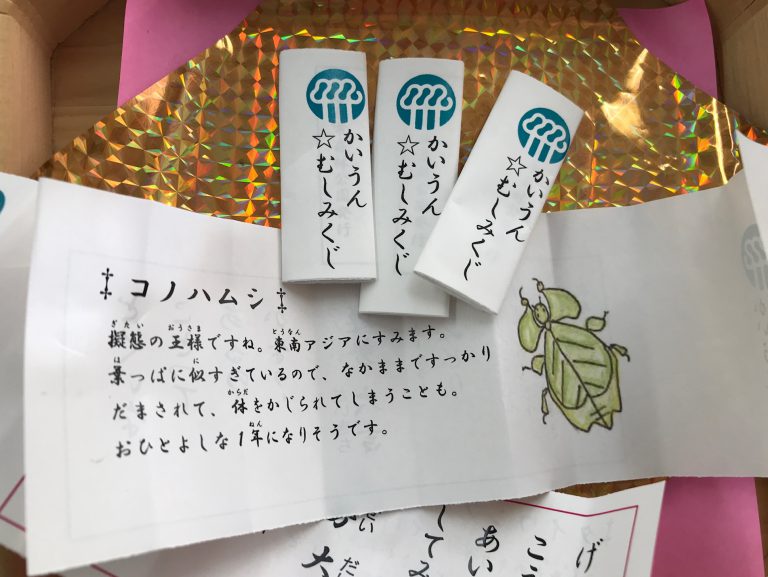 かいうん
☆むしみくじ
かいうん
☆むしみくじ
かいうん
☆むしみくじ
コノハムシ
擬態の王様ですね。東南アジアにすみます。
葉っぱに似すぎているので、なかまますっかり
だまされて、体をかじられてしまうことも。
おひとよしな1年になりそうです。
げ
こう
あい
してみ